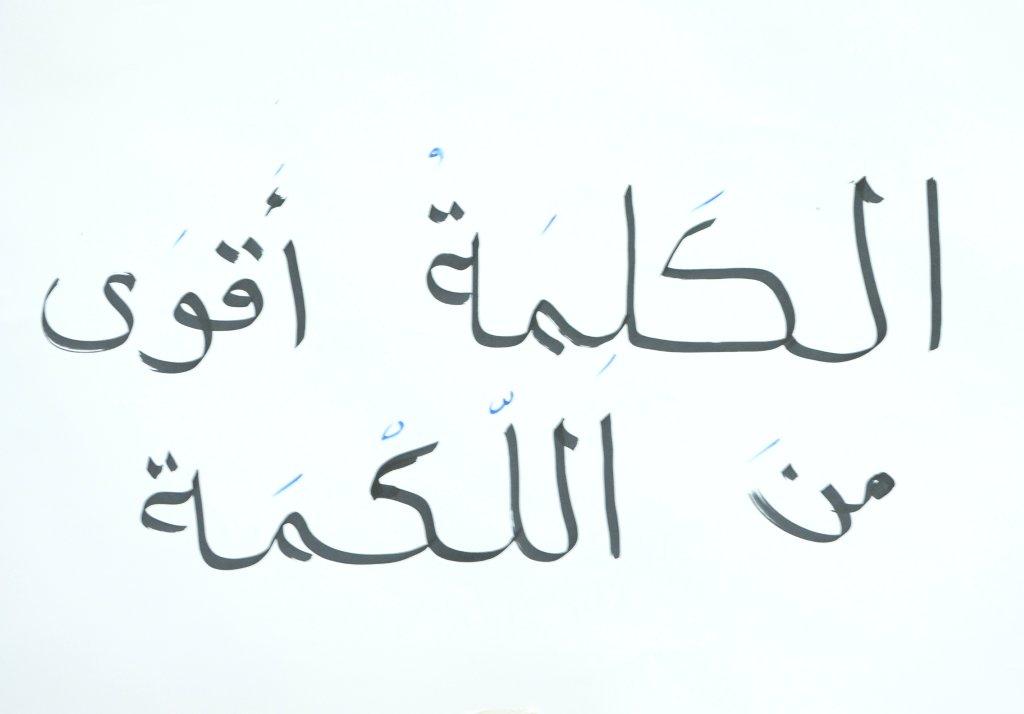 الكَلِمَةُ أَقوَى
منَ اللّكْمَة